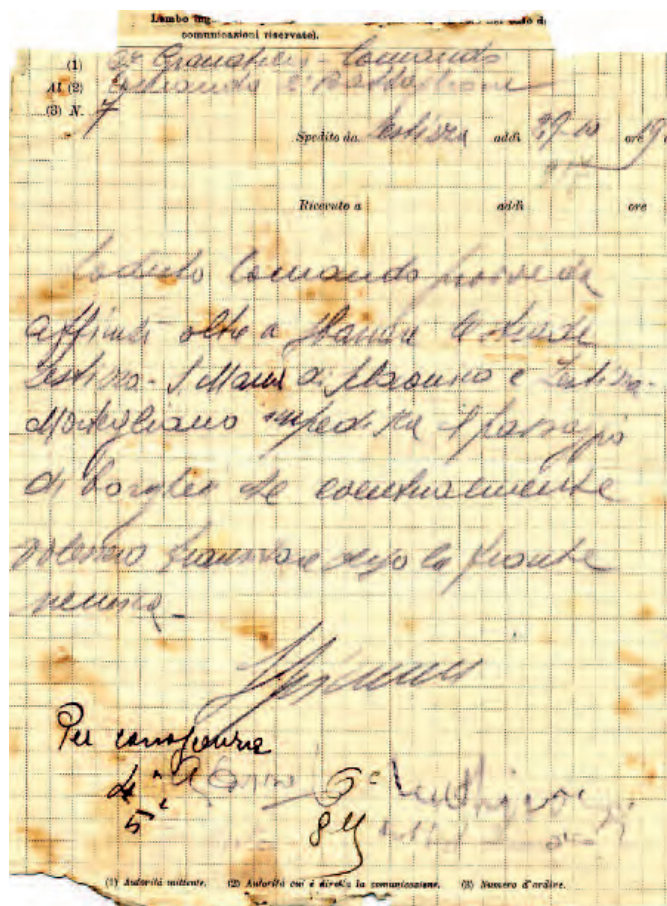 Lembo
comunicazioni riservate).
(1) 2° Granatieri - Comando
Al (2) Comando 2° Battaglione
(3) N. 7
Spedito da Lestizza addì 29-10 ore 19
Ricevuto a addì ore
Codesto Comando provveda
affinché oltre a sbarrare le strade
Lestizza - S. Maria di Sclaunicco e Lestizza -
Mortegliano impedisca il passaggio
di borghesi che eventualmente
volessero transitare verso la fronte
nemica -
Per conoscenza
4ª
5ª
6ª
(1) Autorità mittente. (2) Autorità cui è diretta la comunicazione. (3) Numero d'ordine.